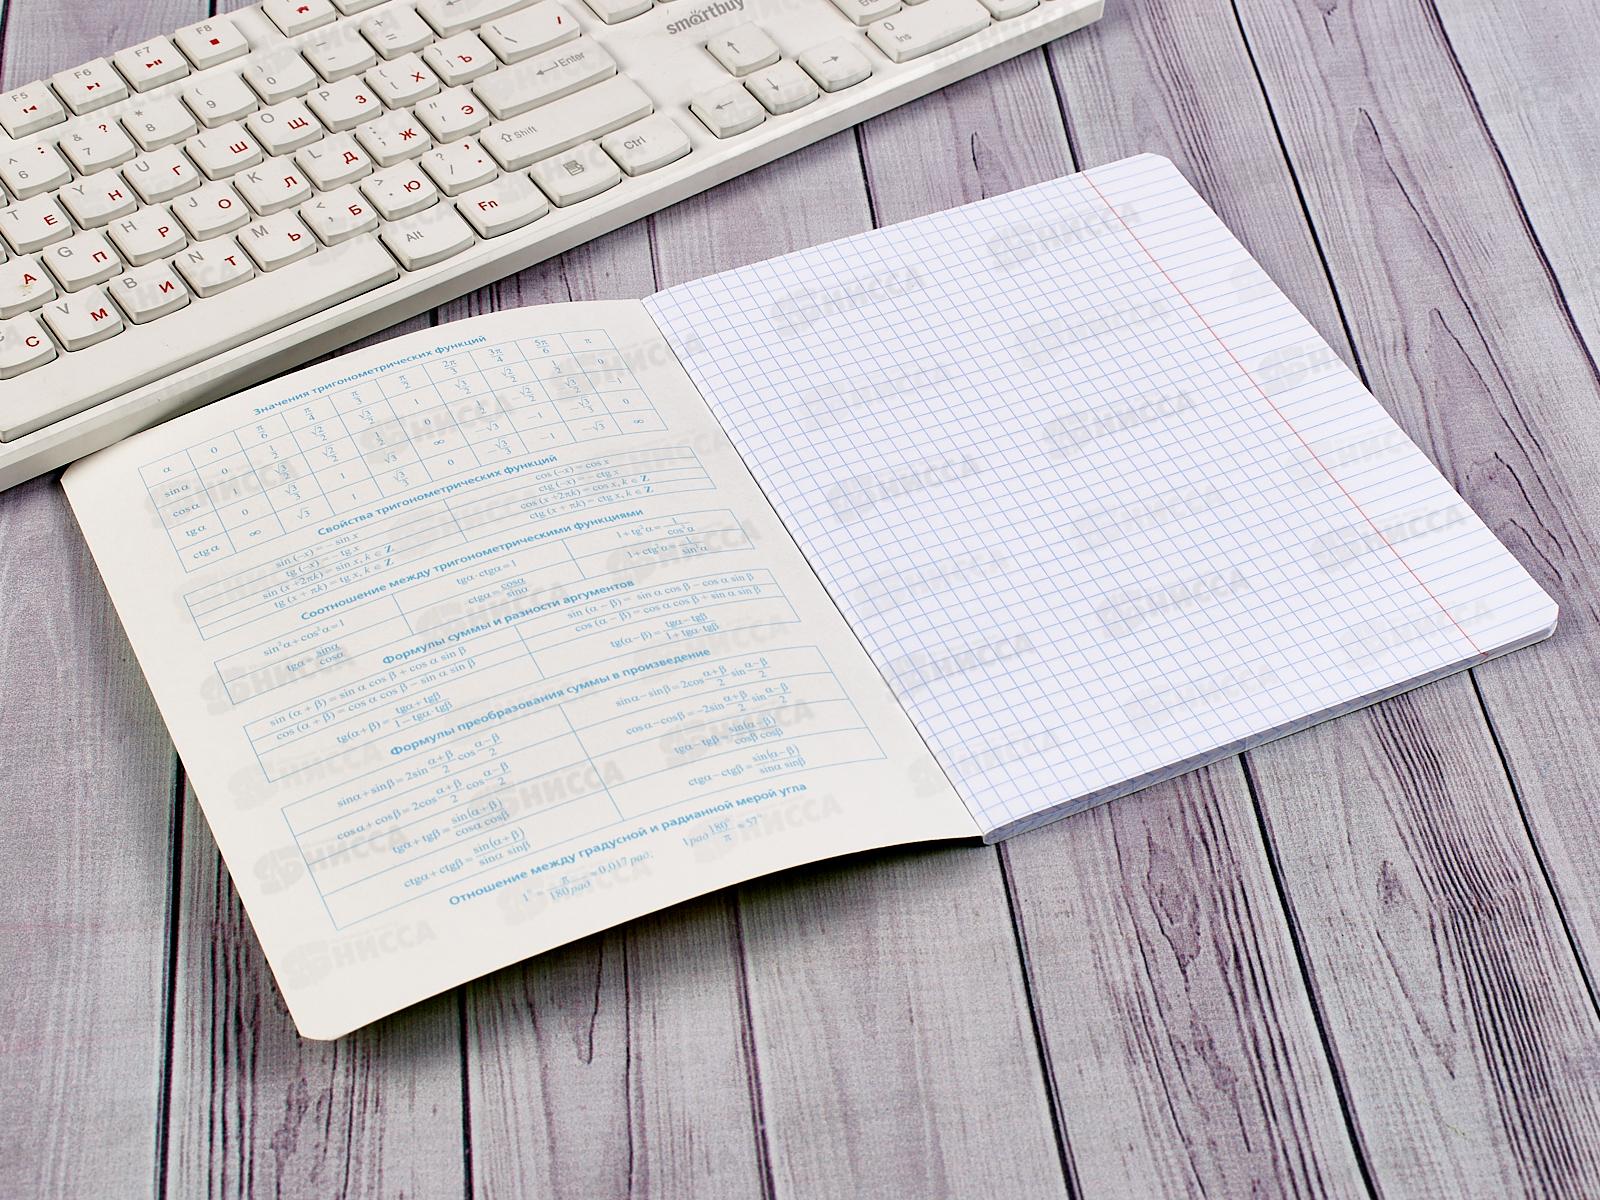 smartbuy
F5
F6
F7
F8
Enter
Shift
Ctrl
Alt
Fn
0
Ins
Значения тригонометрических функций
α 0 π/6 π/4 π/3 π/2 2π/3 3π/4 5π/6 π
sin α 0 1/2 √2/2 √3/2 1 √3/2 √2/2 1/2 0
cos α
tg α
ctg α
Свойства тригонометрических функций
sin (−x) = − sin x cos (−x) = cos x
tg (−x) = − tg x ctg (−x) = − ctg x
sin (x +2πk) = sin x, k ∈ Z cos (x +2πk) = cos x, k ∈ Z
tg (x + πk) = tg x, k ∈ Z ctg (x + πk) = ctg x, k ∈ Z
Соотношение между тригонометрическими функциями
sin²α + cos²α = 1 tgα · ctgα = 1 1 + tg²α = 1/cos²α
tgα = sinα/cosα ctgα = cosα/sinα 1 + ctg²α = 1/sin²α
Формулы суммы и разности аргументов
sin (α + β) = sin α cos β + cos α sin β sin (α − β) = sin α cos β − cos α sin β
cos (α + β) = cos α cos β − sin α sin β cos (α − β) = cos α cos β + sin α sin β
tg(α+β) = tgα + tgβ/1 − tgα · tgβ tg(α−β) = tgα − tgβ/1 + tgα · tgβ
Формулы преобразования суммы в произведение
sinα + sinβ = 2sin α+β/2 cos α−β/2 sinα − sinβ = 2cos α+β/2 sin α−β/2
cosα + cosβ = 2cos α+β/2 cos α−β/2 cosα − cosβ = −2sin α+β/2 sin α−β/2
tgα + tgβ = sin(α+β)/cosα cosβ tgα − tgβ = sin(α−β)/cosβ cosβ
ctgα + ctgβ = sin(α+β)/sinα sinβ ctgα − ctgβ = sin(α−β)/sinα sinβ
Отношение между градусной и радианной мерой угла
1° = π/180 рад ≈ 0,017 рад; 1 рад 180°/π ≈ 57°
НИССА